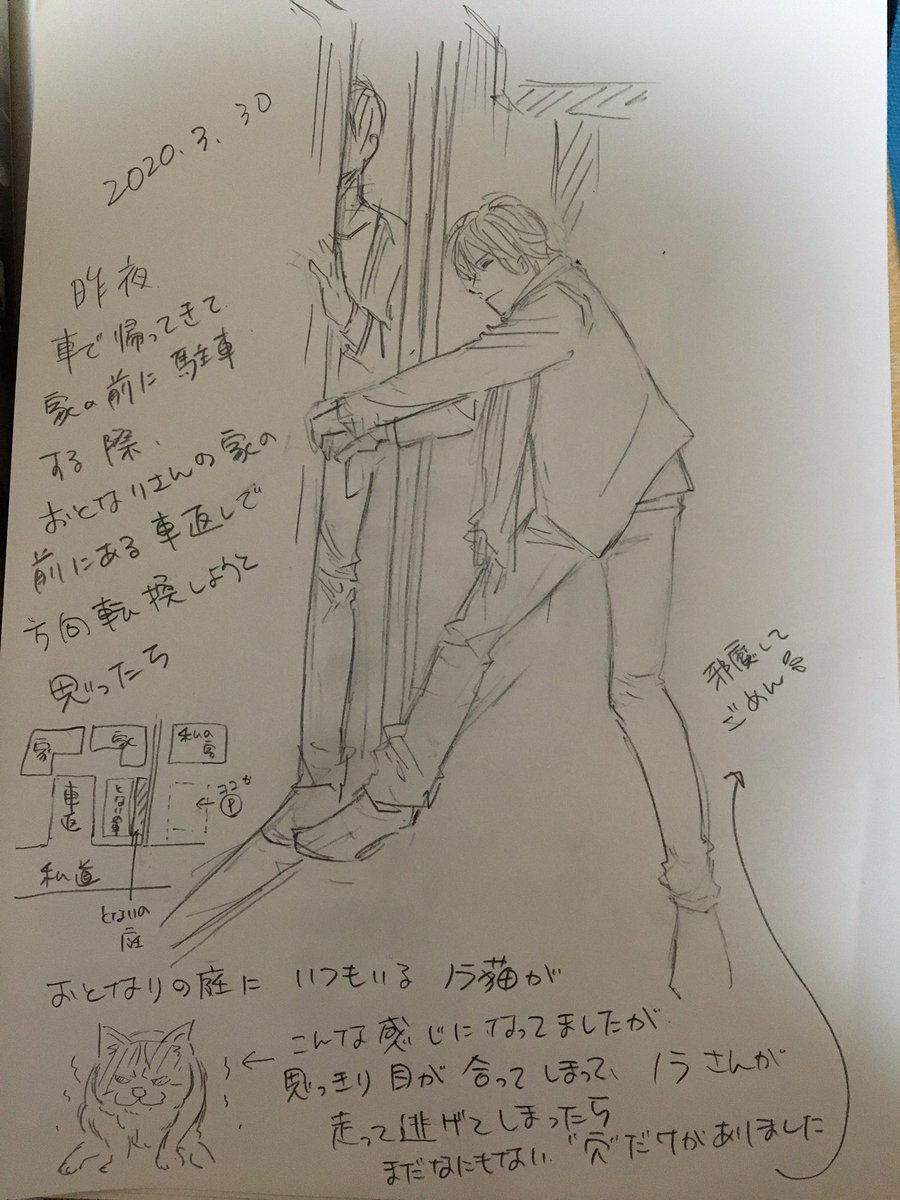 2020.3.30
昨夜
車で帰ってきて
家の前に駐車
する際、
おとなりさんの家の
前にある車返しで
方向転換しようと
思ったち
家
家
私の家
車返
となりの車
ココが
←Ⓟ
私道
とないの
庭
邪魔して
ごめん
おとなりの庭に いつもいる ノラ猫が
← こんな感じになってましたが
思っきり目が合ってしまって、ノラさんが
走って逃げてしまったら
まだなにもない“穴”だけがありました